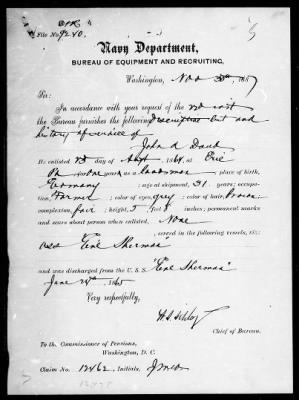 File No. 9240.
Navy Department,
BUREAU OF EQUIPMENT AND RECRUITING,
Washington, Nov 188
Sir:
In accordance with your request of the inst
the Bureau furnishes the following descriptive list and
history of service of
John A
He enlisted day of Sept 1864, at Erie
Pa one year as Landsman place of birth,
Germany ; age at shipment, 31 years; occupa-
tion, Farmer ; color of eyes, grey ; color of hair, brown
complexion, fair ; height, 5 feet inches; permanent marks
and scars about person when enlisted, None
, served in the following vessels, viz:
Genl Sherman
and was discharged from the U. S. S. "Genl Sherman"
June 1865
Very respectfully,
W. S. Schley
Chief of Bureau.
To the Commissioner of Pensions,
Washington, D. C.
Claim No. 12462, Initials,